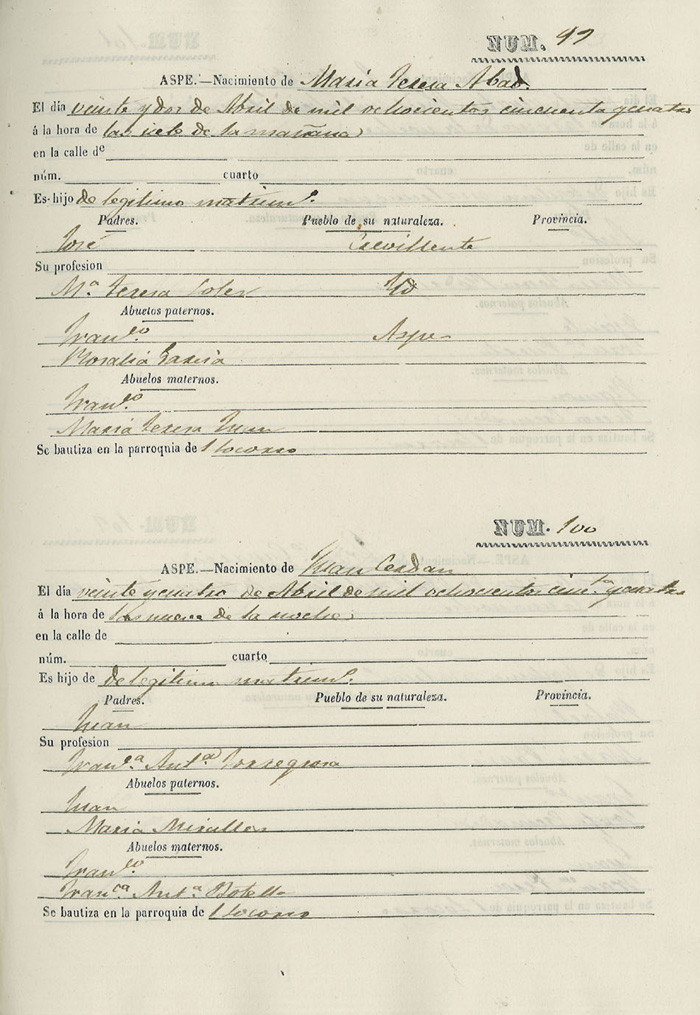 NUM. 99
ASPE.—Nacimiento de Maria Teresa Abad.
El día veinte y dos de Abril de mil ochocientos cincuenta y cuatro
á la hora de las siete de la mañana
en la calle de
núm. cuarto
Es hijo de legitimo matrimº.
Padres. Pueblo de su naturaleza. Provincia.
José Crevillente
Su profesion
Mª Teresa Soler Yd
Abuelos paternos.
Francº Aspe
Rosalia Garcia
Abuelos maternos.
Francº
Maria Teresa
Se bautiza en la parroquia de l Socorro
NUM. 100
ASPE.—Nacimiento de Juan Cerdan
El día veinte y cuatro de Abril de mil ochocientos cinᵗᵃ y cuatro
á la hora de las nueve de la noche
en la calle de
núm. cuarto
Es hijo de legitimo matrimº.
Padres. Pueblo de su naturaleza. Provincia.
Juan
Su profesion
Francª Antª Torregrosa
Abuelos paternos.
Juan
Maria Miralles
Abuelos maternos.
Francº
Francª Antª Botella
Se bautiza en la parroquia de l Socorro